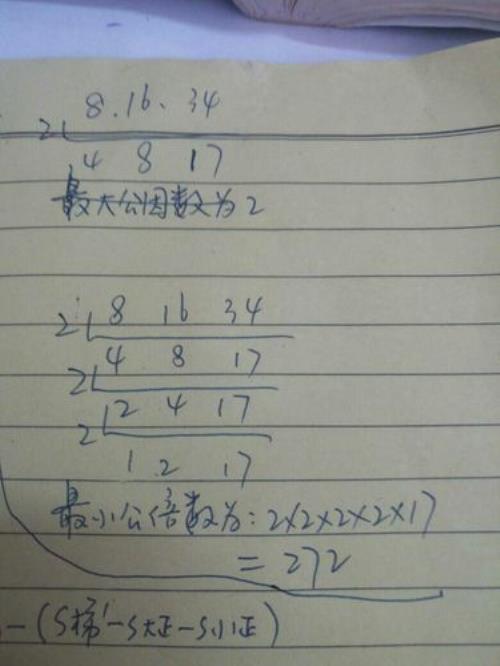 8.16、34
2
4 8 17
最大公因数为2
2 8 16 34
2 4 8 17
2 2 4 17
1 2 17
最小公倍数为:2×2×2×2×17
=272
-(S梯-S大正-S小正)